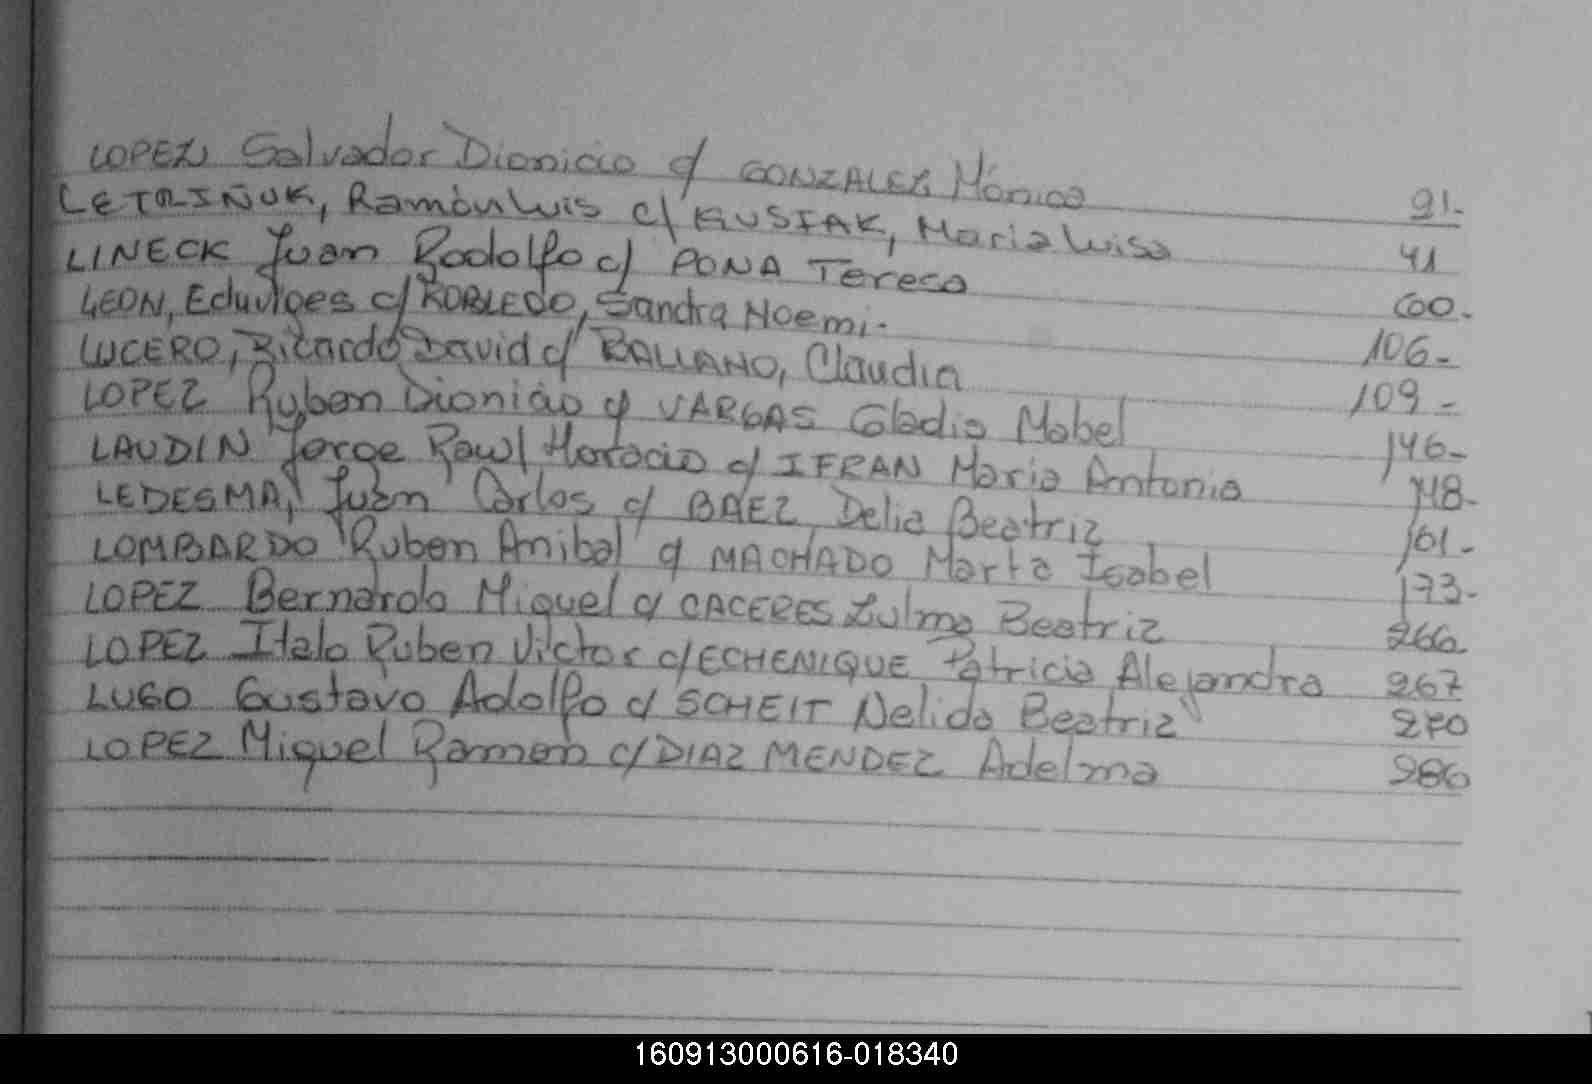 LOPEZ Salvador Dionicio c/ GONZALEZ Mónica 91-
LETRIÑUK, Ramón Luis c/ KUSIAK, Maria Luisa 41
LINECK Juan Rodolfo c/ PONA Teresa 60-
LEON, Eduviges c/ ROBLEDO, Sandra Noemi- 106-
LUCERO, Ricardo David c/ BALLANO, Claudia 109-
LOPEZ Ruben Dionicio c/ VARGAS Gladis Mabel 146-
LAUDIN Jorge Raul Horacio c/ IFRAN Maria Antonia 148-
LEDESMA, Juan Carlos c/ BAEZ Delia Beatriz 161-
LOMBARDO Ruben Anibal c/ MACHADO Marta Isabel 173-
LOPEZ Bernardo Miguel c/ CACERES Zulma Beatriz 266
LOPEZ Italo Ruben Victor c/ ECHENIQUE Patricia Alejandra 267
LUGO Gustavo Adolfo c/ SCHEIT Nelida Beatriz 270
LOPEZ Miguel Ramon c/ DIAZ MENDEZ Adelma 286
160913000616-018340